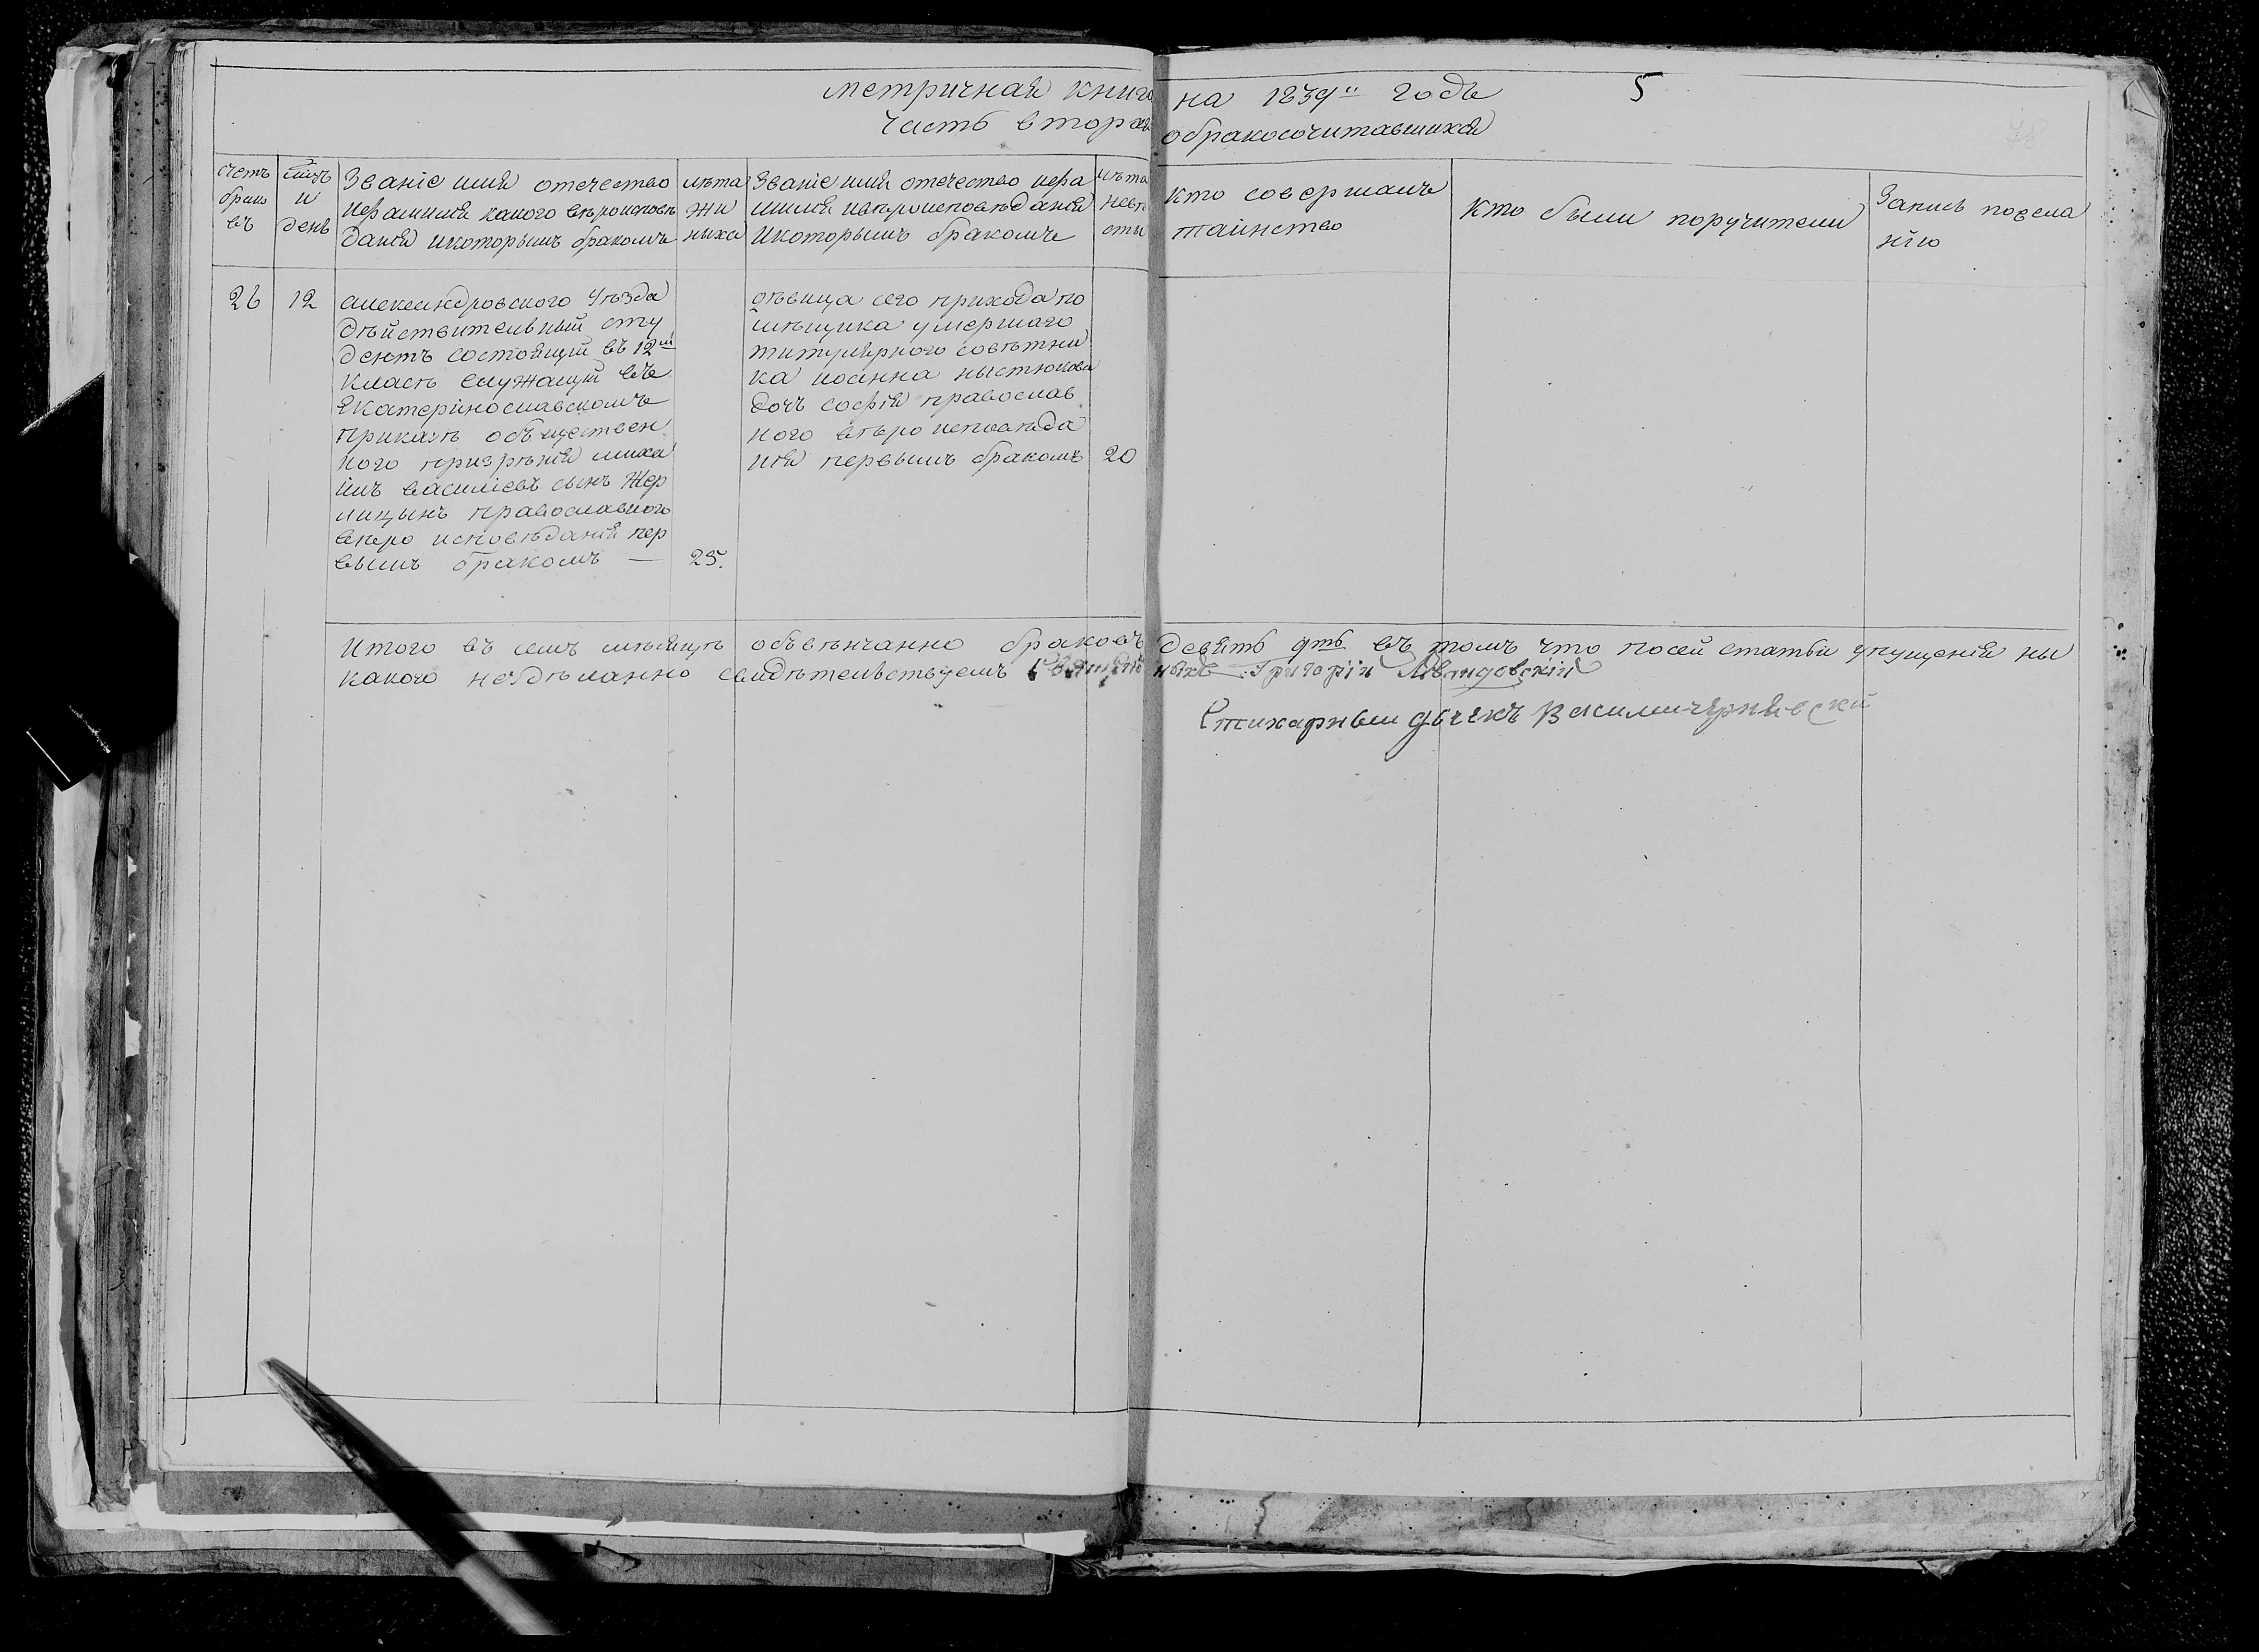 метричная книга на 1839ıı годъ 5
Часть вторая обракосочитавшихся
78
Счетъ
брако
въ
мцъ
и
день
Званіе имя отечество
ифамилия какого вѣроисповѣ
данія икоторымъ бракомъ
лѣта
жи
ниха
Званіе имя отечество ифа
милия ивѣроисповѣданія
икоторымъ бракомъ
лѣта
невѣ
сты
кто совершалъ
таинство
Кто были поручители
Запись пожела
нію
26
12
александровского уѣзда
дѣйствительный сту
дентъ состоящій въ 12м
класѣ служащій въ
Екатеринославскомъ
приказѣ общественъ
ного призрѣнія миха
илъ василіевъ сынъ Жер
лицынъ православного
вѣро исповѣданія пер
вымъ бракомъ —
25.
дѣвица сего прихода по
мѣщика умершаго
титулярного совѣтни
ка иоанна
дочъ софія православ
ного вѣро исповѣда
нія первымъ бракомъ
20
Итого въ семъ мѣсяцѣ объвѣнчанно браковъ девять 9ть въ томъ что посей статьи упущенія ны
какого не здѣланно свидѣтелствуемъ Григорій
Стихарный дьячекъ Василий Чернявский